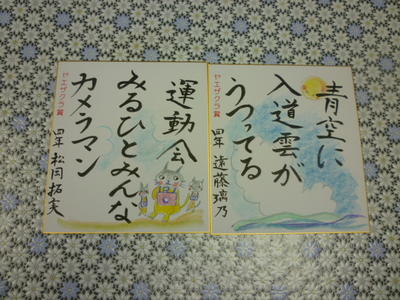 青空に
入道雲が
うつってる
ヤエザクラ賞
四年 遠藤璃乃
運動会
みるひとみんな
カメラマン
ヤエザクラ賞
四年 松岡拓実